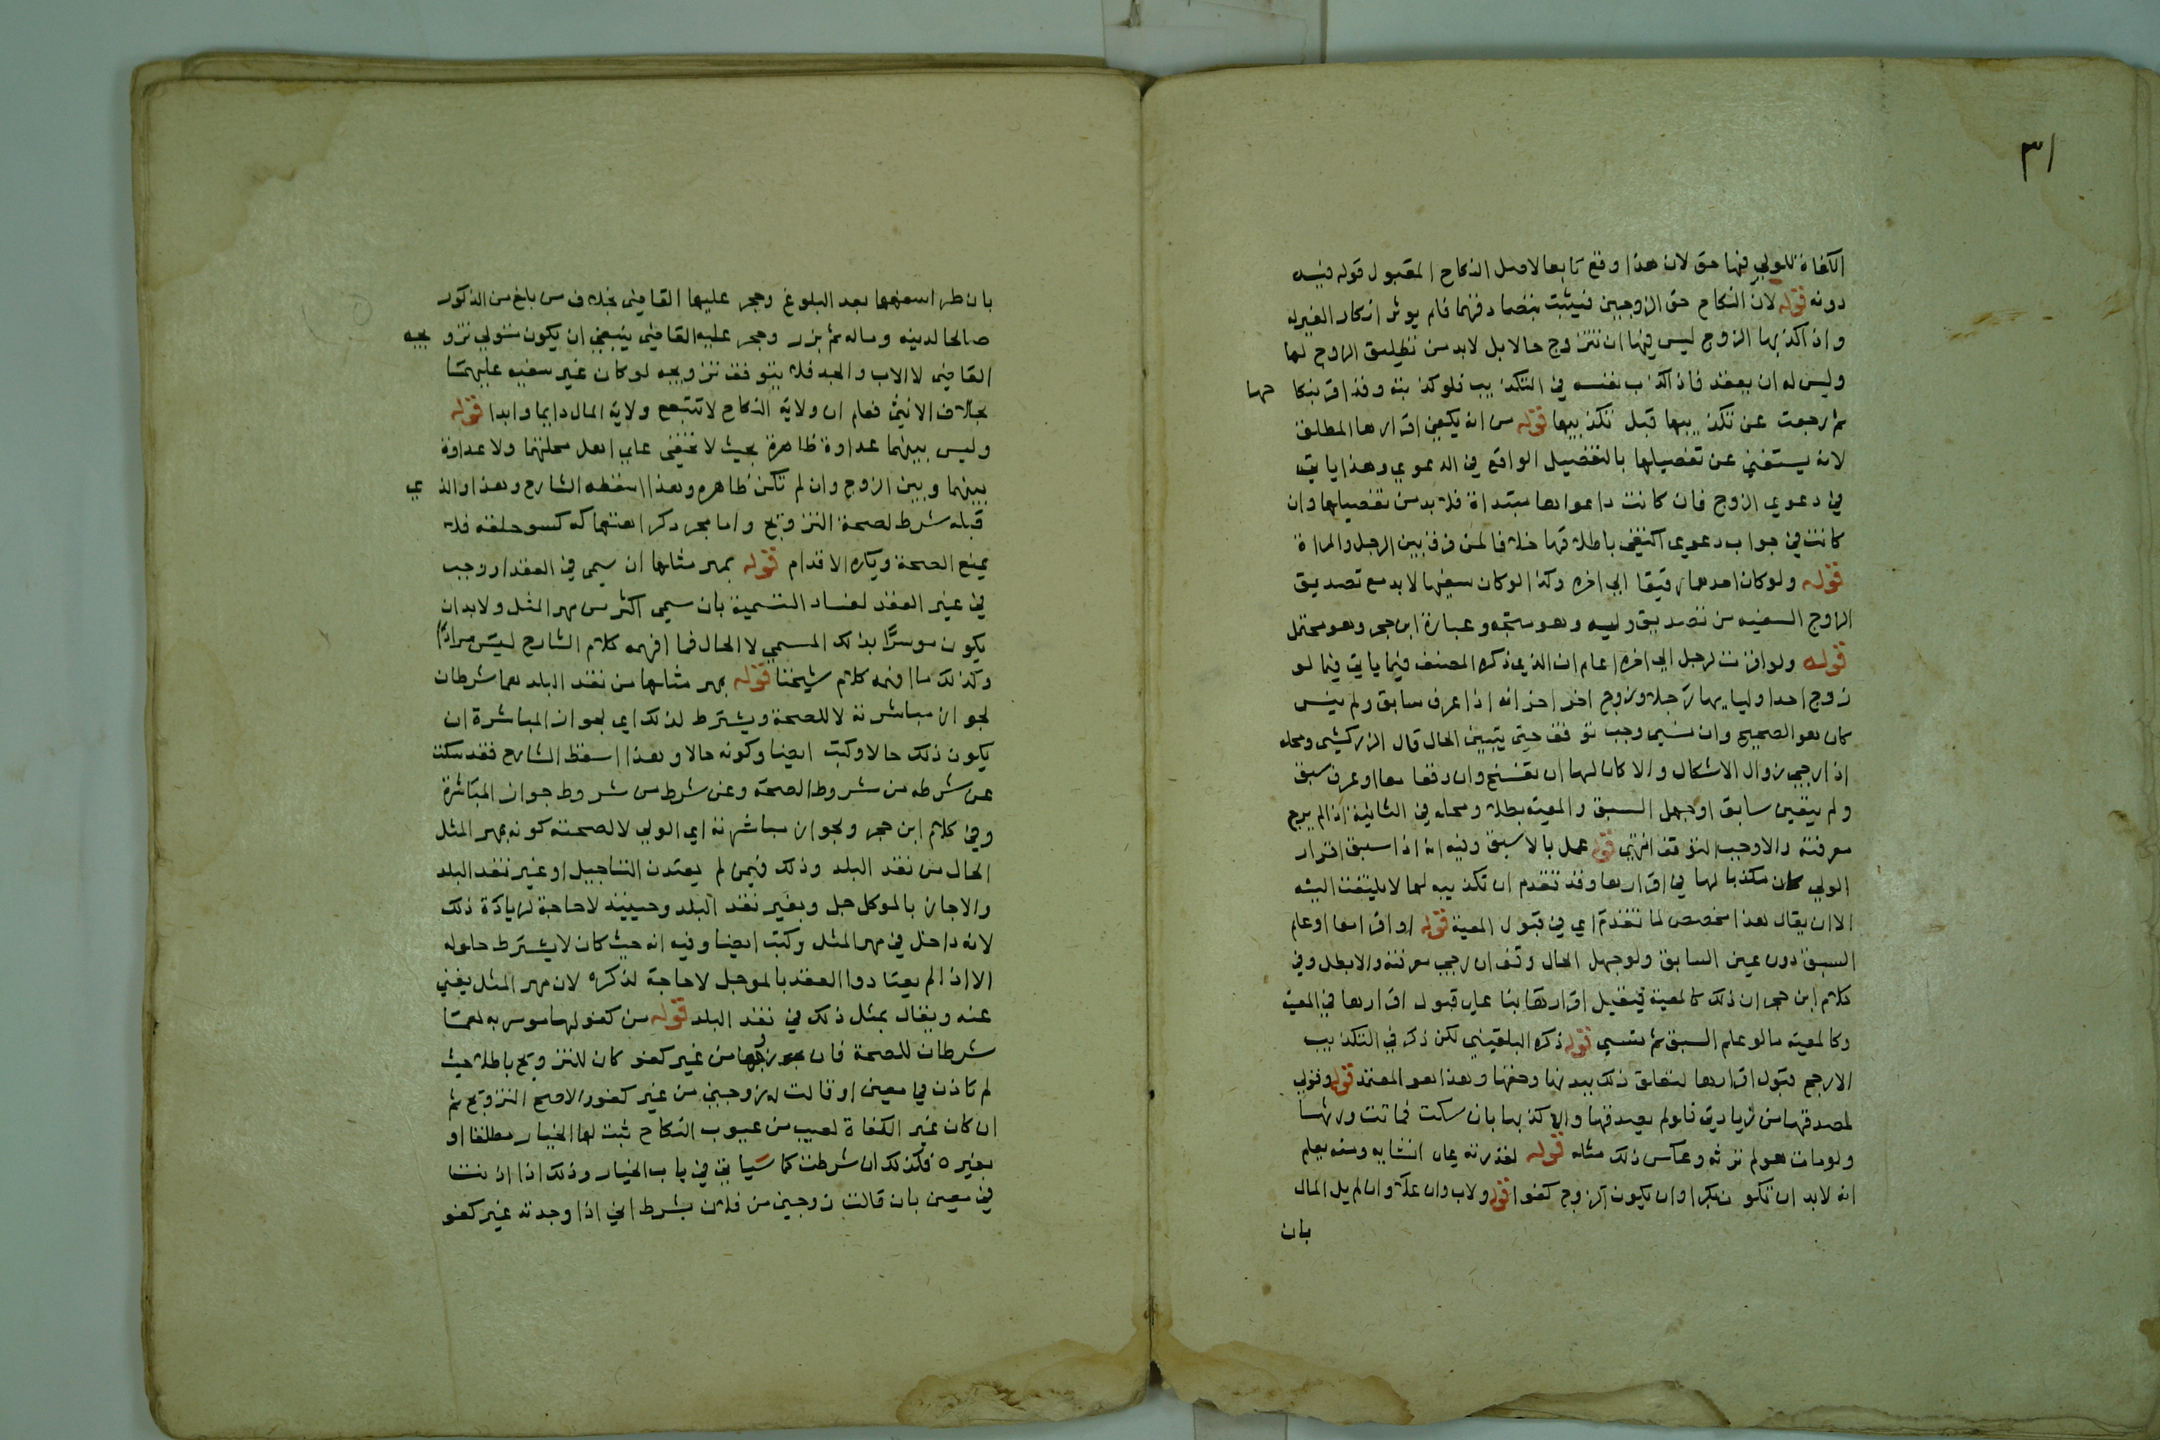 ٣١
الكفاة للولي فيها حق لان هذا وقع تابعا لاصل النكاح المقبول قوله فيه
دونه قوله لان النكاح حق الزوجين فيثبت بتصادقهما فلم يوثر انكار الغير له
واذا كذبها الزوج ليس لها ان تتزوج حالا بل لابد من تطليق الزوج لها
وليس له ان يعقد فاذا كذب نفسه في التكذيب فلو كذبته وقد اقر بنكاحها
ثم رجعت عن تكذيبها قبل تكذيبها قوله من انه يكفي اقرارها المطلق
لانه يستغني عن تفصيلها بالتفصيل الواقع في الدعوي وهذا ياتي
في دعوي الزوج فان كانت دعواها مبتداة فلا بد من تفصيلها وان
كانت في جواب دعوي اكتفي باطلاقها خلافا لمن فرق بين الرجل والمراة
قوله ولو كان احدهما رقيقا الي اخره وكذا لو كان سفيها لابد مع تصديق
الزوج السفيه من تصديق وليه وهو متجه وعبارة ابن حجر وهو محتمل
قوله ولو اذنت لرجل الي اخره اعلم ان الذي ذكره المصنف فيما ياتي فيما لو
زوج احد اوليايها رجلا وزوج اخر اخر انه اذا عرف سابق ولم ينس
كان هو الصحيح وان نسي وجب توقف حتي يتبين الحال قال الزركشي ومحله
اذا رجي زوال الاشكال والا كان لهما ان تفسخ وان وقعا معا او عرف سبق
ولم يتعين سابق او جهل السبق والمعية بطلا ومحله في الثانية اذا لم يرج
معرفته والا وجب التوقف انتهي قوله عمل بالاسبق وفيه انه اذا سبق اقرار
الولي كان مكذبا لها في اقرارها وقد تقدم ان تكذيبه لها لا يلتفت اليه
الا ان يقال هذا مخصص لما تقدم اي في قبول المعية قوله او اقرا معا او علم
السبق دون عين السابق ولو جهل الحال وقف ان رجي معرفته والا بطل وفي
كلام ابن حجر ان ذلك كالمعية فيقبل اقرارها بنا علي قبول اقرارها في المعية
وكالمعية ما لو علم السبق ثم نسي قوله ذكره البلقيني لكن ذكر في التكذيب
الارجح قبول اقرارها لتعلق ذلك ببدنها وحقها وهذا هو المعتمد قوله وقولي
لمصدقها من زيادتي فلو لم يصدقها ولا كذبها بان سكت فماتت ورثها
ولو مات هو لم ترثه وعكس ذلك مثله قوله لقدرته علي انشايه ومنه يعلم
انه لا بد ان تكون بكرا وان يكون الزوج كفوا قوله ولاب وان علا وان لم يل المال
بان
بان طرا سفهها بعد البلوغ وحجر عليها القاضي بخلاف من بلغ من الذكور
صالحا لدينه وماله ثم بذر وحجر عليه القاضي ينبغي ان يكون متولي تزويجه
القاضي لا الاب والجد فلا يتوقف تزويجه لو كان غير سفيه عليهما
بخلاف الانثي فعلم ان ولاية النكاح لا تتبع ولاية المال دايما وابدا قوله
وليس بينهما عداوة ظاهرة بحيث لا تخفي علي اهل محلتهما ولا عداوة
بينهما وبين الزوج وان لم تكن ظاهرة وهذا اسقطه الشارح وهذا والذي
قبله شرط لصحة التزويج واما مجرد كراهتها له كسو خلقه فلا
يمنع الصحة ويكره الاقدام قوله بمهر مثلها ان سمي في العقد او وجب
في غير العقد لفساد التسمية بان سمي اكثر من مهر المثل ولا بد ان
يكون موسرا بذلك المسمي لا الحال فما افهمه كلام الشارح ليس مرادا
وكذلك ما افهمه كلام شيخنا قوله بمهر مثلها من نقد البلد هما شرطان
لجواز مباشرته لا للصحة ويشترط لذلك اي لجواز المباشرة ان
يكون ذلك حالا وكتب ايضا وكونه حالا وهذا اسقط الشارح فقد سكت
عن شرطه من شروط الصحة وعن شرط من شروط جواز المباشرة
وفي كلام ابن حجر ولجواز مباشرته اي الولي لا لصحته كونه بمهر المثل
الحال من نقد البلد وذلك فيمن لم يعتدن التاجيل او غير نقد البلد
والا جاز بالموكل جل وبغير نقد البلد وحينيذ لا حاجة لزيادة ذلك
لانه داخل في مهر المثل وكتب ايضا وفيه انه حيث كان لا يشترط حلوله
الا اذا لم يعتادوا العقد بالموجل لا حاجة لذكره لان مهر المثل يغني
عنه ويقال بمثل ذلك في نقد البلد قوله من كفو لها موسر به هما
شرطان للصحة فان زوجها من غير كفو كان للتزويج باطلا حيث
لم تاذن في معين او قالت له زوجني من غير كفو والاصح التزويج ثم
ان كان غير الكفاة لعيب من عيوب النكاح ثبت لها الخيار مطلقا او
بغيره فكذلك ان شرطت كما سياتي في باب الخيار وذلك اذا اذنت
في معين بان قالت زوجني من فلان بشرط اني اذا وجدته غير كفو